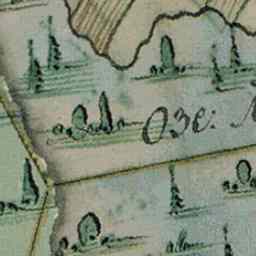 Озе: